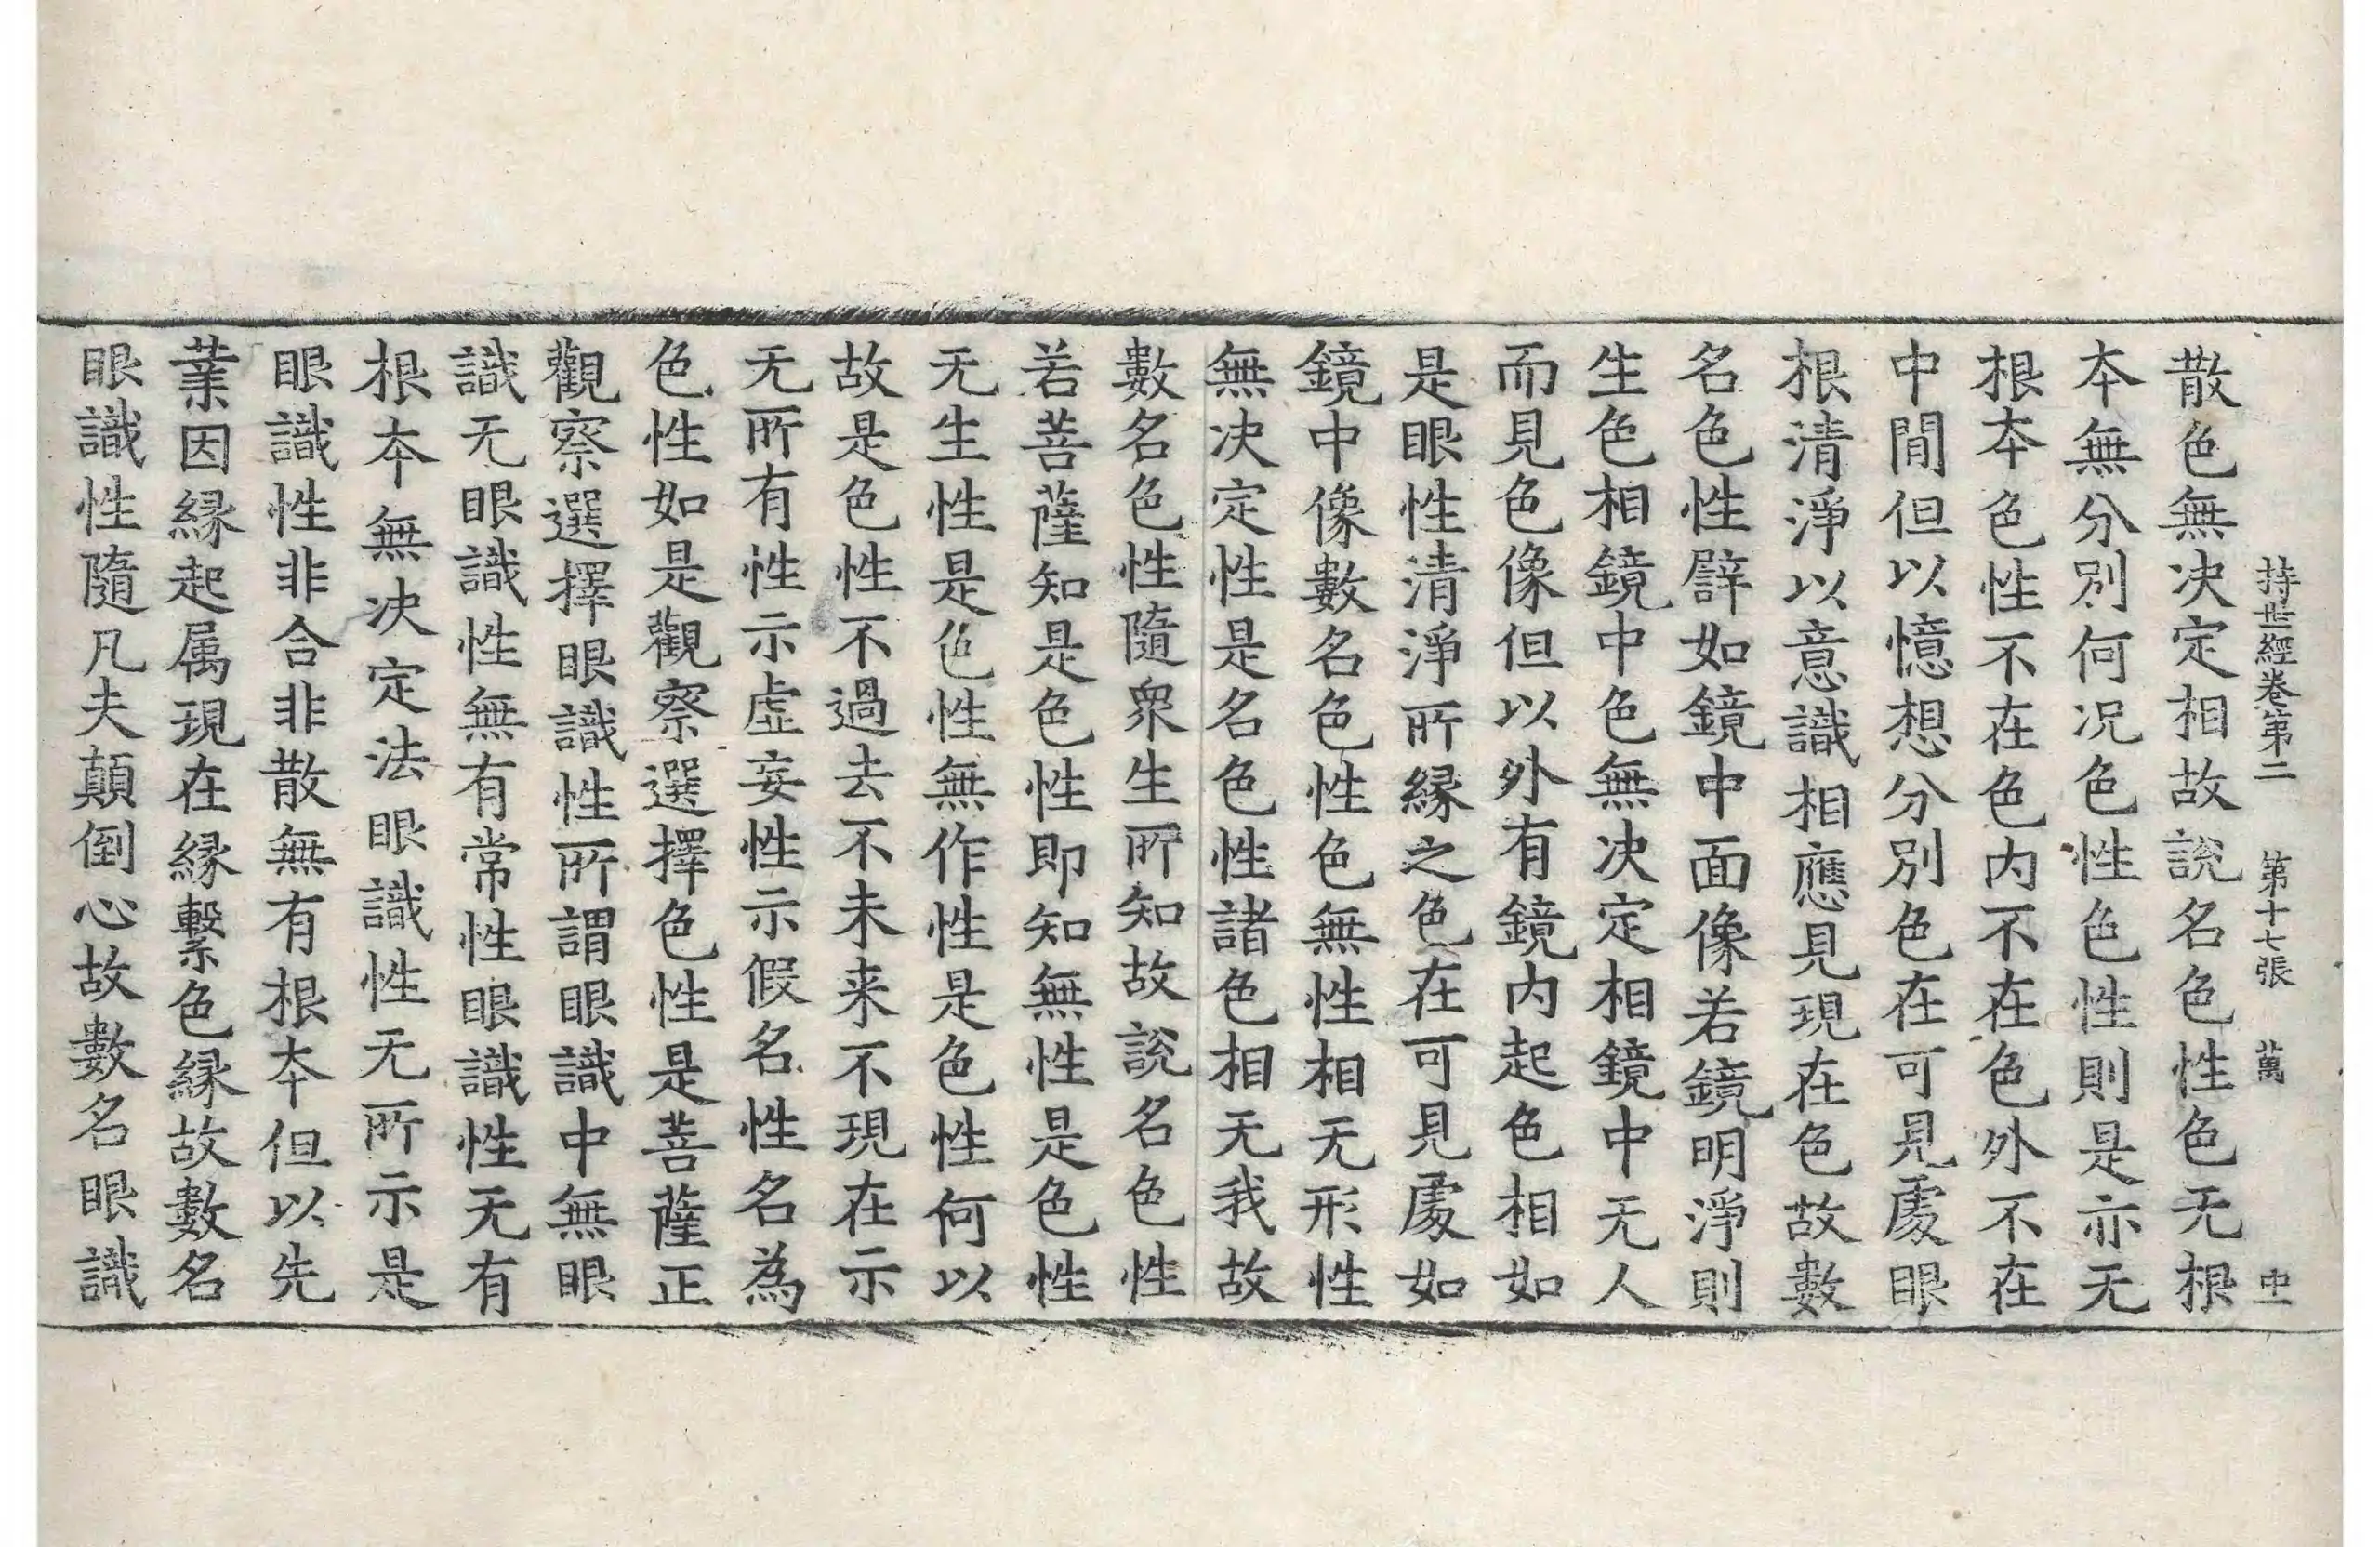 持世經卷第二　第十七張　萬
散色無决定相故說名色性色无根
本無分別何况色性色性則是亦无
根本色性不在色内不在色外不在
中閒但以憶想分別色在可見處眼
根清淨以意識相應見現在色故數
名色性譬如鏡中面像若鏡明淨則
生色相鏡中色無决定相鏡中无人
而見色像但以外有鏡内起色相如
是眼性清淨所縁之色在可見處如
鏡中像數名色性色無性相无形性
無决定性是名色性諸色相无我故
數名色性隨衆生所知故說名色性
若菩薩知是色性即知無性是色性
无生性是色性無作性是色性何以
故是色性不過去不未来不現在示
无所有性示虚妄性示假名性名為
色性如是觀察選擇色性是菩薩正
觀察選擇眼識性所謂眼識中無眼
識无眼識性無有常性眼識性无有
根本無决定法眼識性无所示是
眼識性非合非散無有根本但以先
業因縁起属現在縁繫色縁故數名
眼識性隨凡夫顛倒心故數名眼識